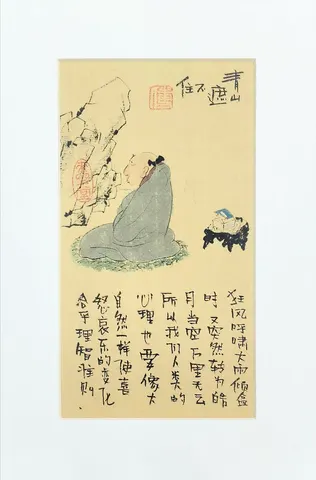 青山遮不住
狂风呼啸大雨倾盆
时又突然转为皓
月当空万里无云
所以我们人类的
心理也要像大
自然一样使喜
怒哀乐的变化
合乎理智准则.